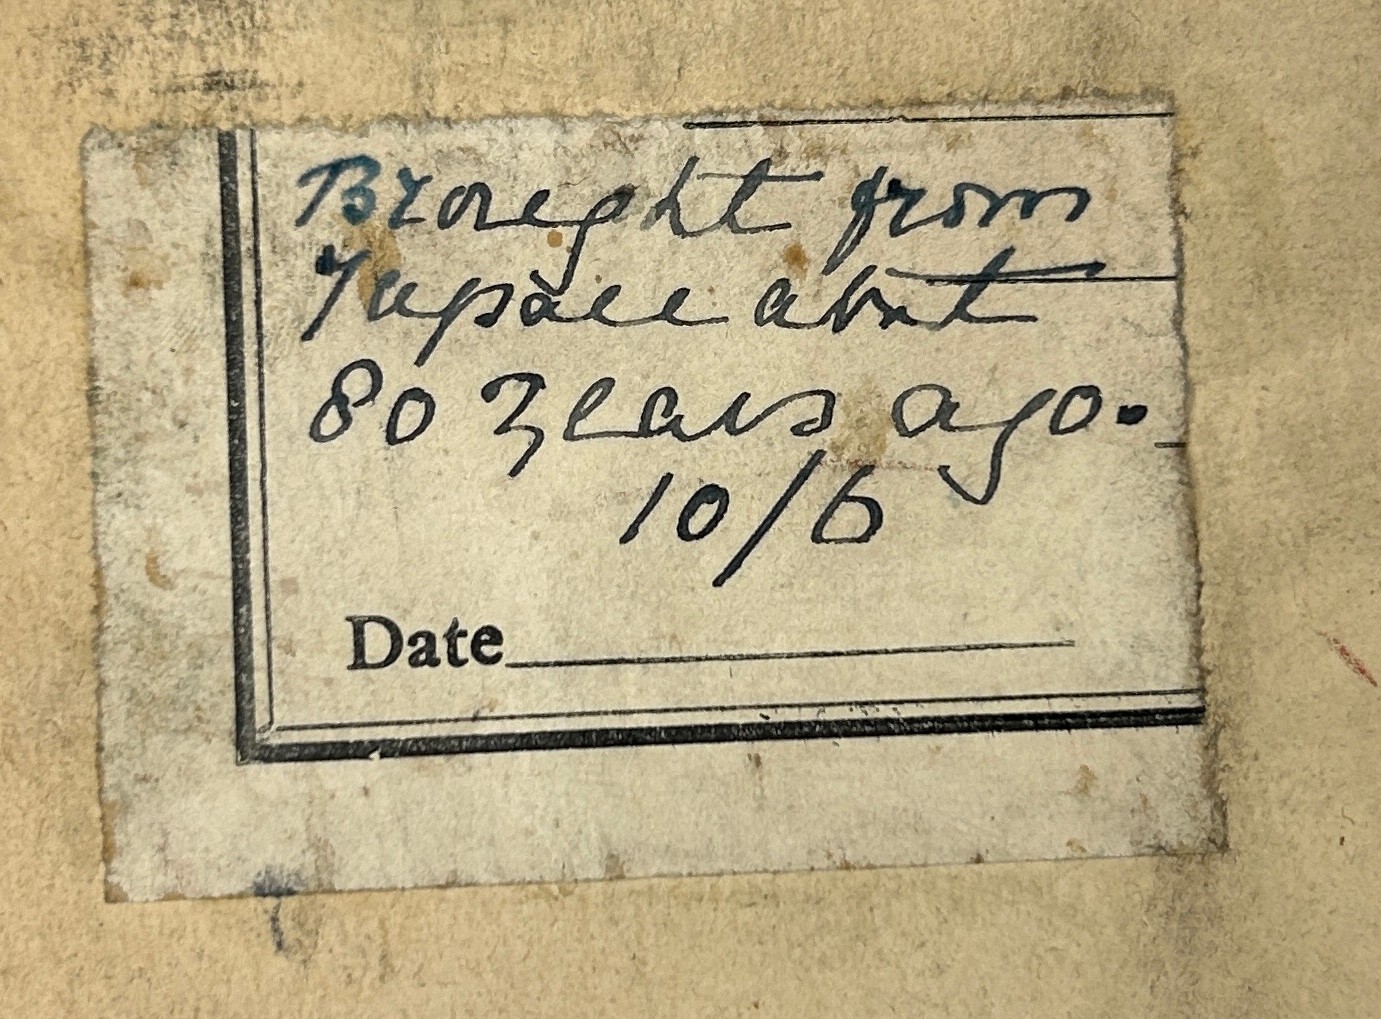 Brought from
about
80 years ago.
10/6
Date